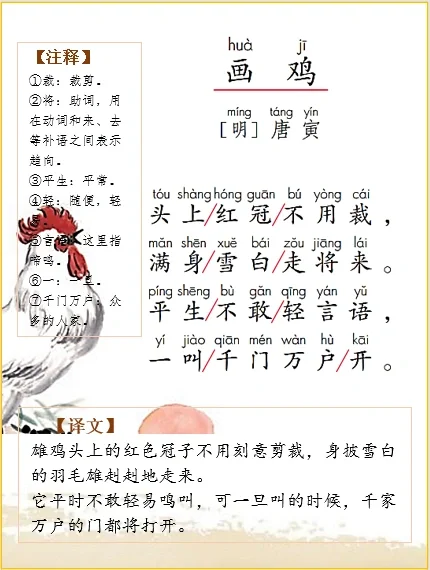 【注释】
①裁：裁剪。
②将：助词，用
在动词和来、去
等补语之间表示
趋向。
③平生：平常。
④轻：随便，轻
易。
⑤言语：这里指
啼鸣。
⑥一：一旦。
⑦千门万户：众
多的人家。
huà jī
画 鸡
míng táng yín
［明］唐 寅
tóu shàng hóng guān bú yòng cái
头上/红冠/不用裁，
mǎn shēn xuě bái zǒu jiāng lái
满身/雪白/走将来。
píng shēng bù gǎn qīng yán yǔ
平生/不敢/轻言语，
yí jiào qiān mén wàn hù kāi
一叫/千门万户/开。
【译文】
雄鸡头上的红色冠子不用刻意剪裁，身披雪白
的羽毛雄赳赳地走来。
它平时不敢轻易鸣叫，可一旦叫的时候，千家
万户的门都将打开。